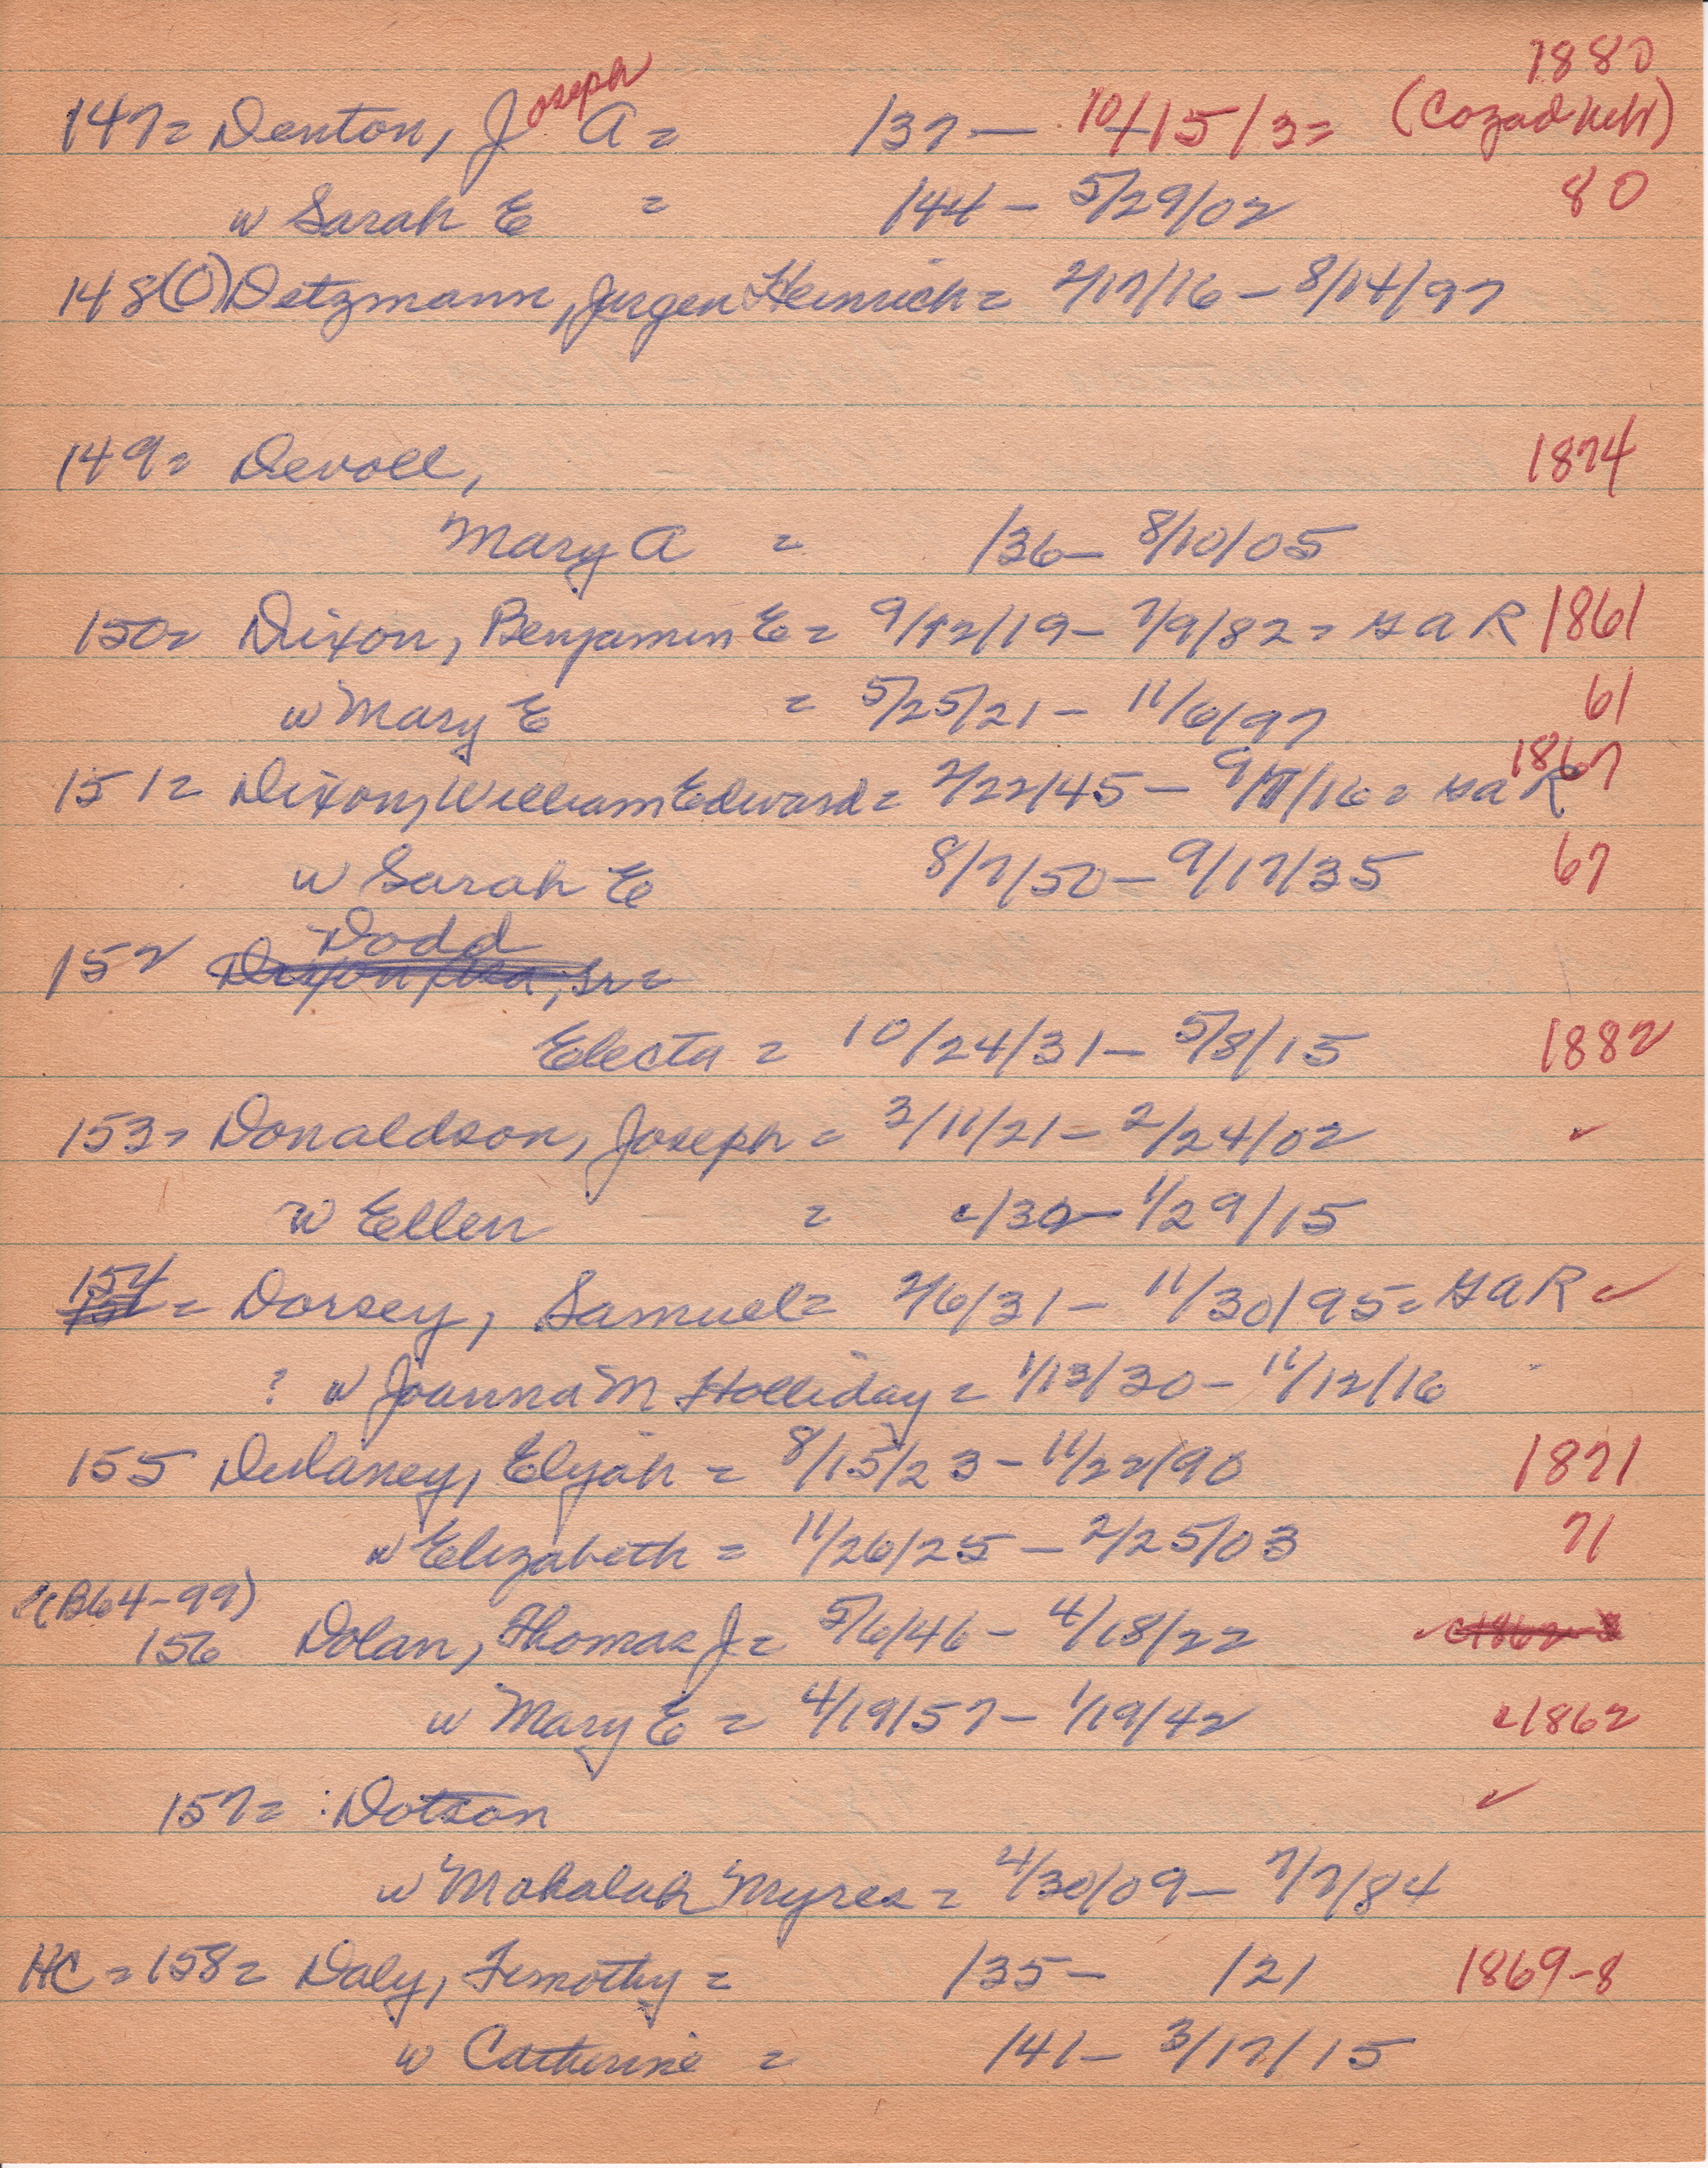 1880
147= Denton, Joseph A = /37— 10/15/32 (Cozad Nebr)
w Sarah E = /44 — 5/29/02 80
148(O) Detzmann, Jurgen Heinrich = 2/17/16 — 8/14/97
149= Devoll, 1874
Mary A = /36— 8/10/05
150= Dixon, Benjamin E = 9/12/19— 7/9/82 = GAR 1861
w Mary E = 5/25/21 — 11/6/97 61
1867
151= Dixon, William Edward = 2/22/45 — 9/11/16 = GAR
w Sarah E 8/7/50— 9/17/35 67
Dodd
152 Dixon, Sr =
Electa = 10/24/31— 5/8/15 1882
153= Donaldson, Joseph = 3/11/21— 2/24/02 ✓
w Ellen = c/30— 1/29/15
154 = Dorsey, Samuel = 2/6/31 — 11/30/95 = GAR ✓
? w Joanna M Holliday = 1/13/30— 11/12/16
155 Dulaney, Elijah = 8/15/23 — 11/22/90 1871
w Elizabeth = 11/26/25 — 2/25/03 71
(B64-99)
156 Dolan, Thomas J = 5/6/46 — 4/18/22 ✓ c1862-3
w Mary E = 4/19/57— 1/19/42 c1862
157= : Dotson ✓
w Mahalah Myres = 4/30/09— 7/7/84
HC = 158= Daly, Timothy = /35— /21 1869-8
w Catherine = /41— 3/17/15